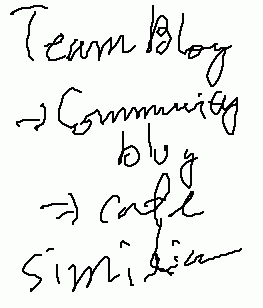 Team Blog
→ Community
blog
⇒ cafe
similar